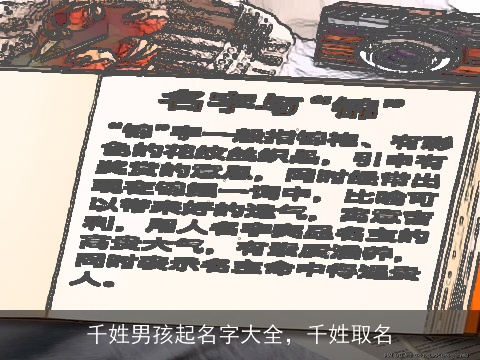 名字与“锦”
“锦”字一般指锦袍、有彩
色的花纹丝织品，引申有
美好的意思，同时锦带出
现在锦鲤一词中，比喻可
以带来好的运气，寓意吉
利，用人名字突显名主的
高贵大气，有气质涵养，
同时表示名主命中得遇贵
人。
千姓男孩起名字大全，千姓取名